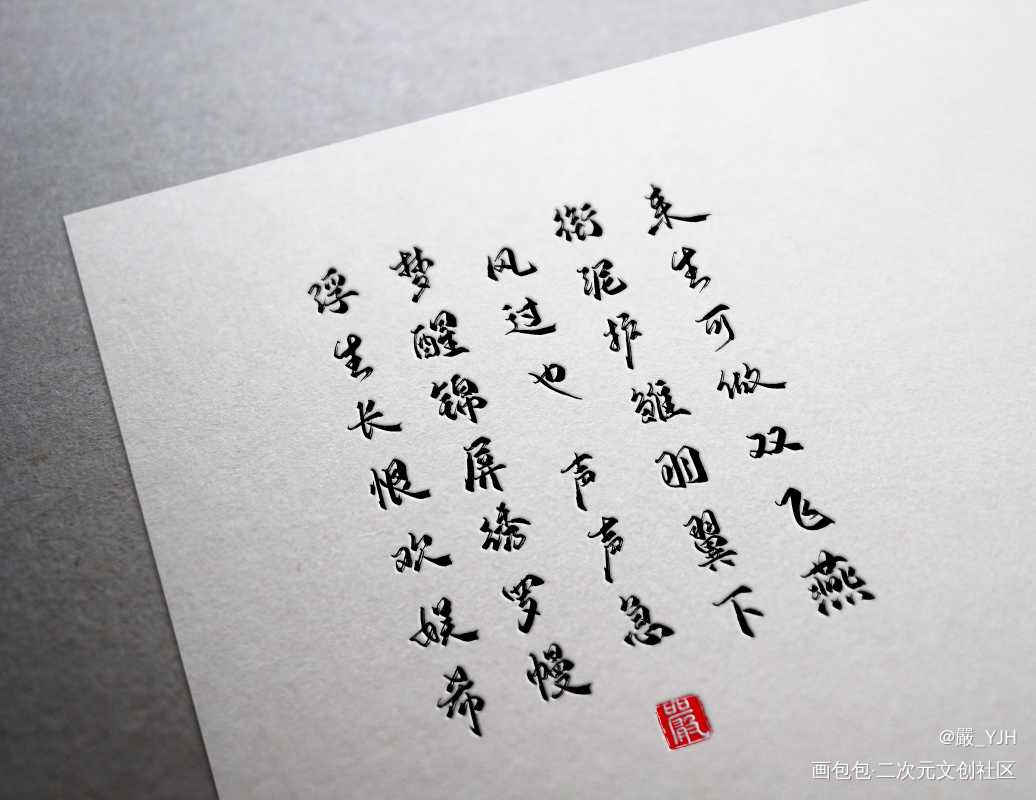 浮生长恨欢娱希
梦醒锦屏绣罗幔
风过也 声声急
衔泥护雏羽翼下
来生可做双飞燕
嚴
@嚴_YJH
画包包·二次元文创社区